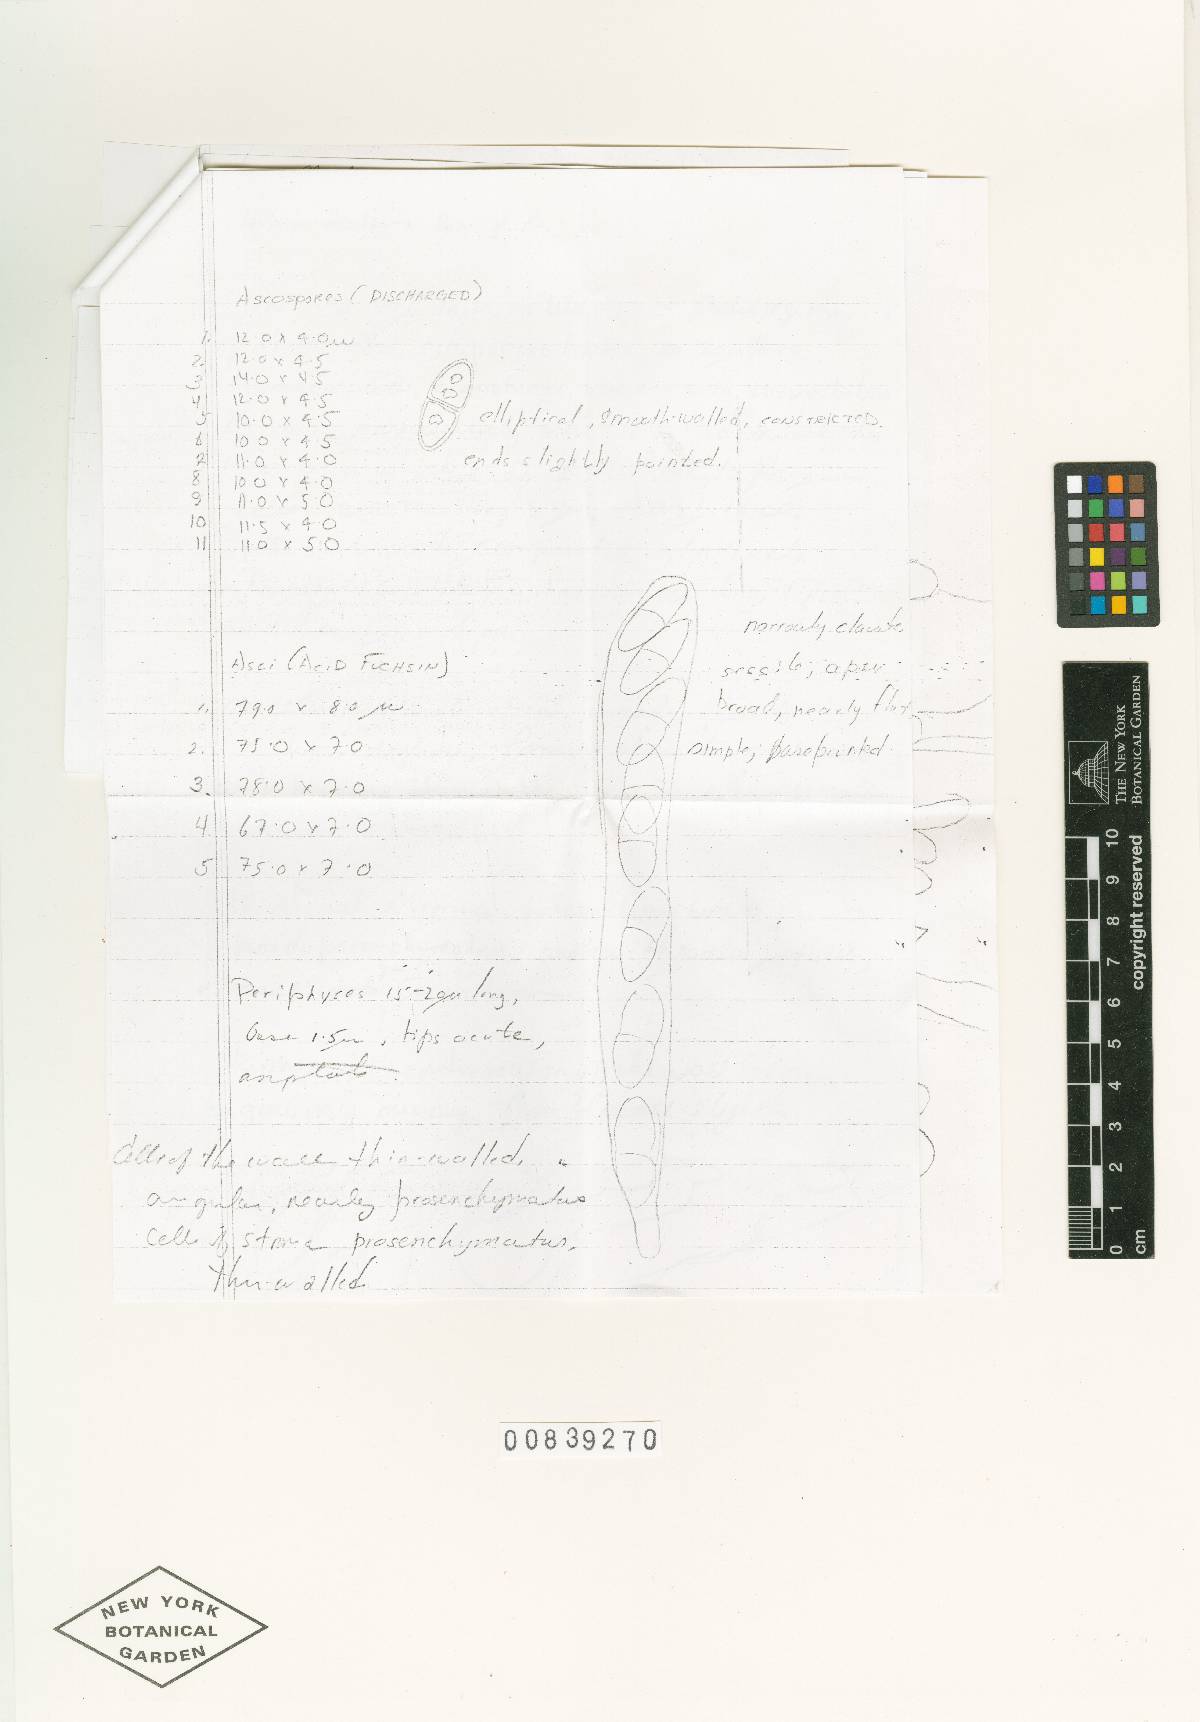 Ascospores (DISCHARGED)
1. 12.0 x 4.0 µ
2. 12.0 x 4.5
3 14.0 x 4.5
4 12.0 x 4.5
5 10.0 x 4.5
6 10.0 x 4.5
7 11.0 x 4.0
8 10.0 x 4.0
9 11.0 x 5.0
10 11.5 x 4.0
11 11.0 x 5.0
elliptical, smooth-walled, CONSTRICTED.
ends slightly pointed.
Asci (ACID FUCHSIN)
1. 79.0 x 8.0 µ
2. 75.0 x 7.0
3. 78.0 x 7.0
4 67.0 x 7.0
5 75.0 x 7.0
narrowly clavate
sessile; apex
broad, nearly flat
simple; base pointed
Periphyses 15-20µ long,
base 1.5µ, tips acute,
Cells of the wall thin-walled,
angular, nearly prosenchymatus
Cells of stroma prosenchymatus,
thin-walled
00839270
NEW YORK
BOTANICAL
GARDEN
THE NEW YORK
BOTANICAL GARDEN
copyright reserved
cm 0 1 2 3 4 5 6 7 8 9 10